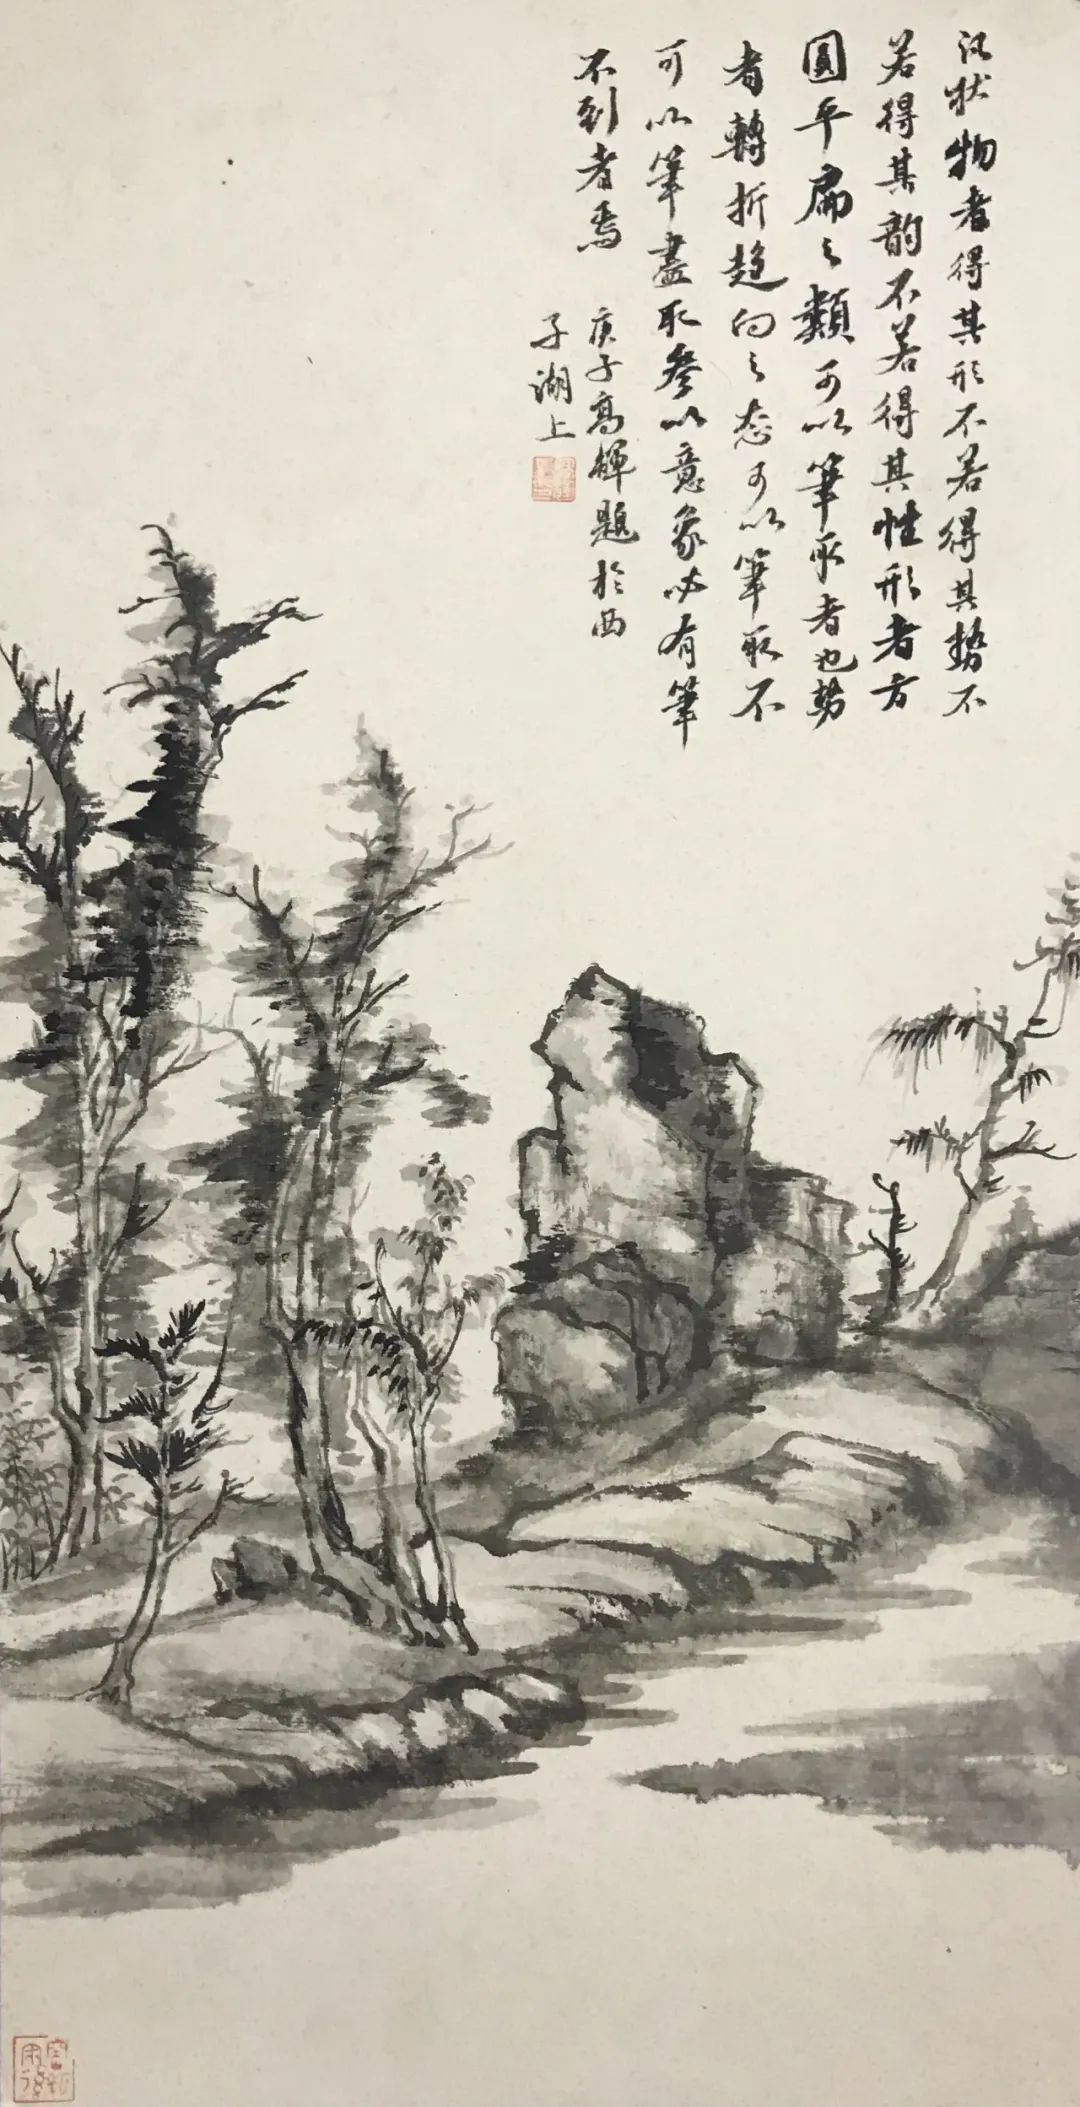 凡状物者得其形不若得其势不
若得其韵不若得其性形者方
圓平扁之類可以筆取者也势
者轉折趋向之态可以筆取不
可以筆盡取参以意象必有筆
不到者焉
庚子高輝題於西
子湖上